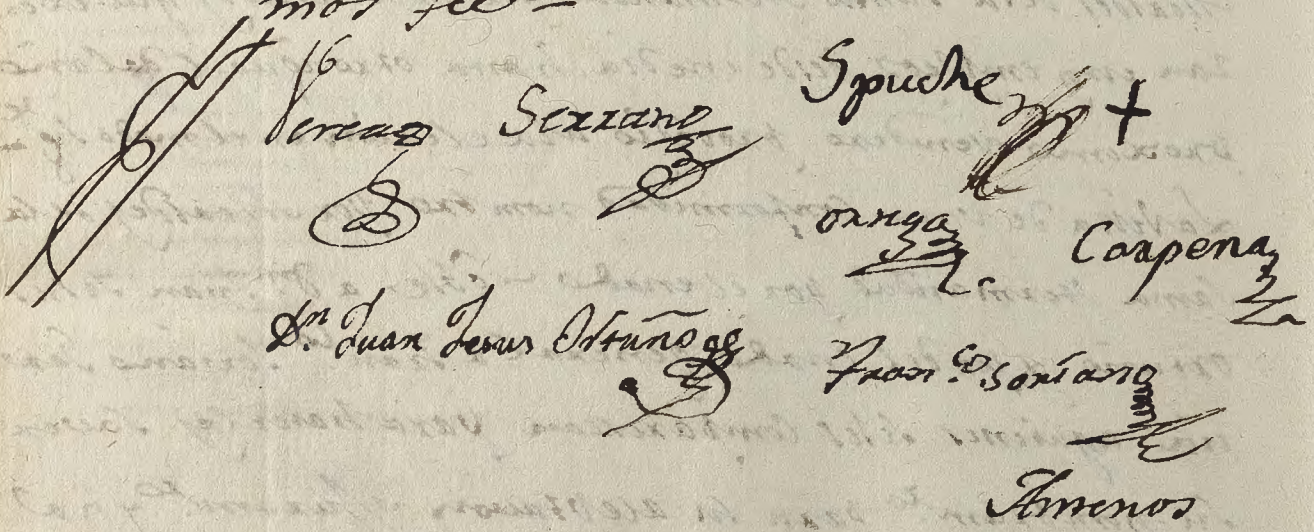 mos fee
Perez Serrano Spuche +
Ortega Carpena
Dn. Juan Jesus Ortuño
Fran.co Soriano
Antenos